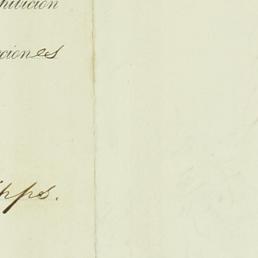 hibición
ciones
pps.